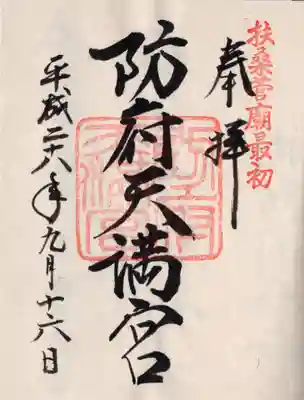 扶桑菅廟最初
奉拝
防府天満宮
平成二十六年九月十六日